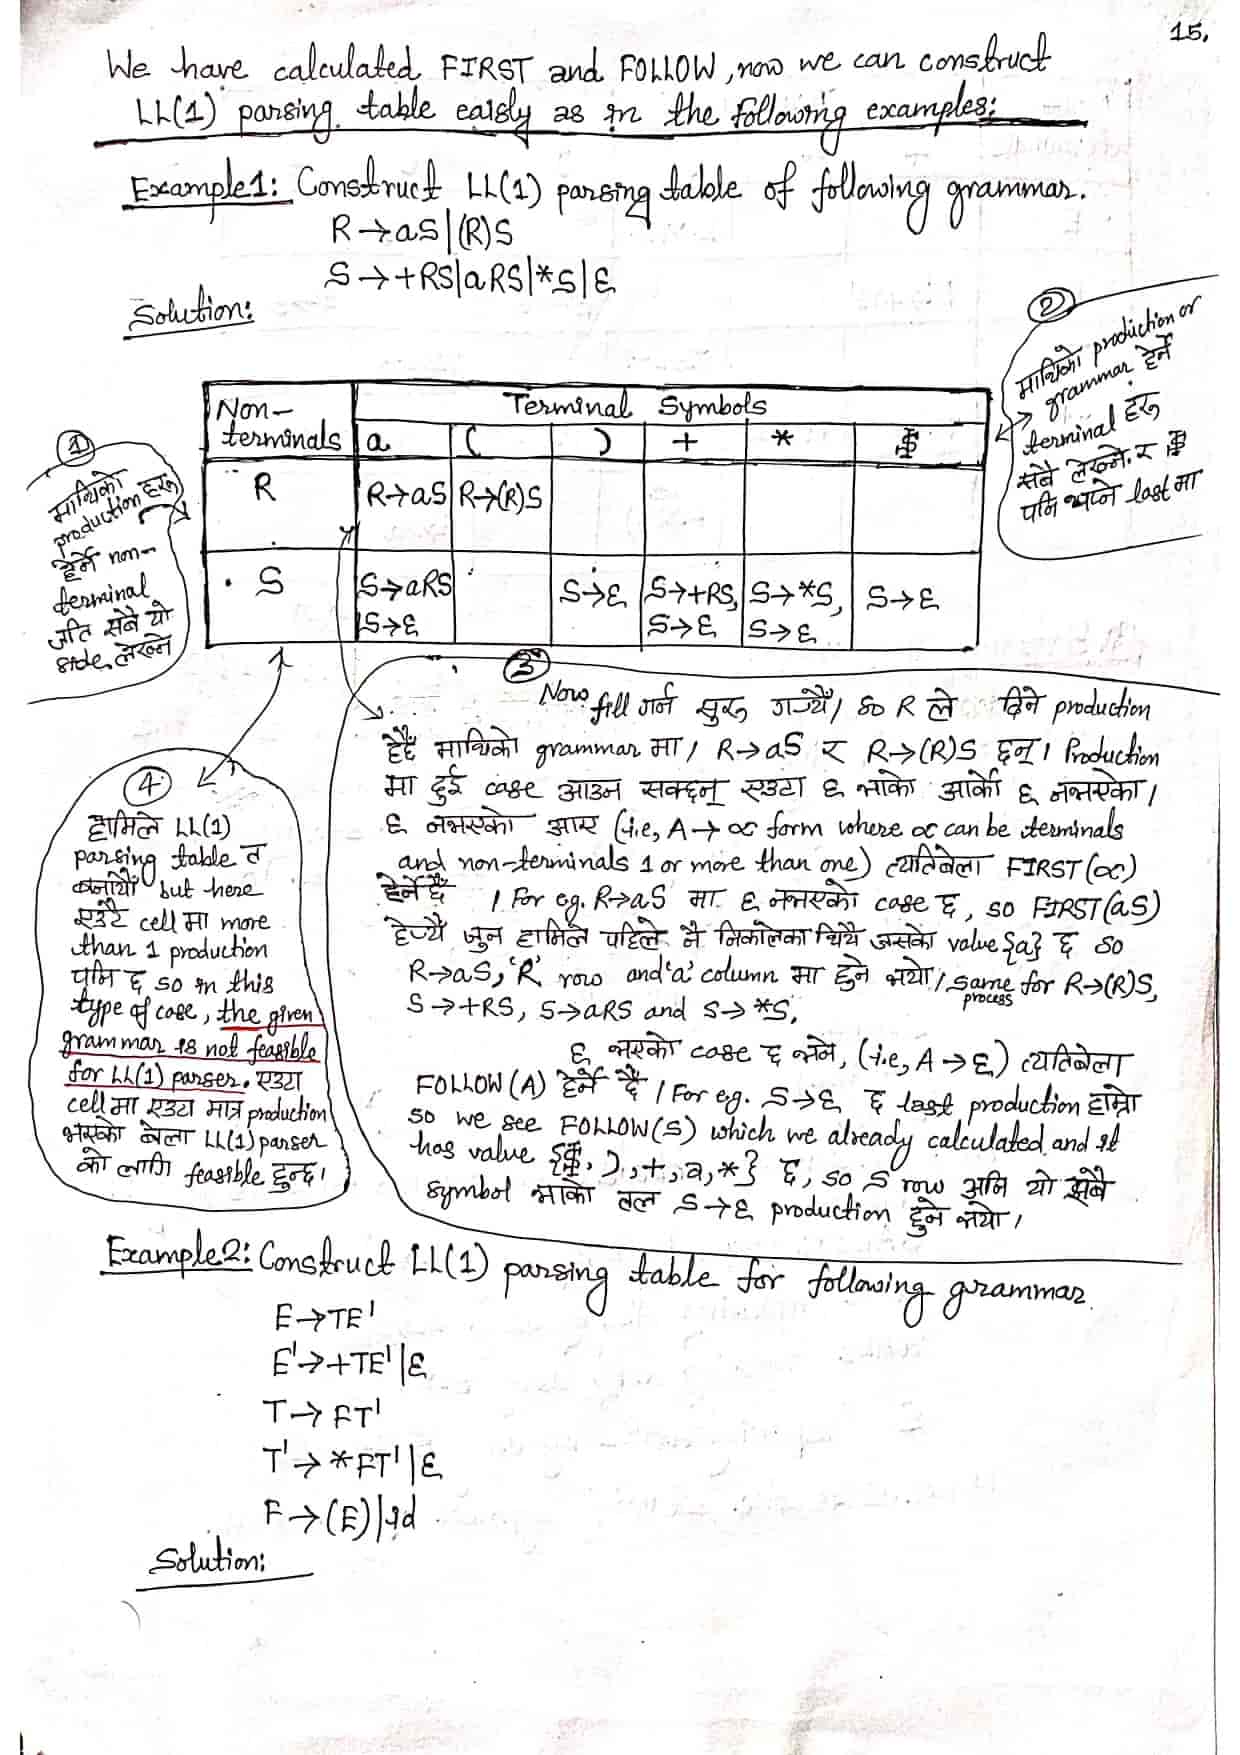 15.
We have calculated FIRST and FOLLOW, now we can construct
LL(1) parsing table eaisly as in the following examples:
Example1: Construct LL(1) parsing table of following grammar.
R→aS|(R)S
S→+RS|aRS|*S|ε
Solution:
②
माथिको production or
grammar हेर्ने
terminal हरू
सबै लेख्ने र $
पनि थप्ने last मा
Non-terminals Terminal Symbols
a ( ) + * $
R R→aS R→(R)S
S S→aRS S→ε S→+RS, S→*S, S→ε
S→ε S→ε S→ε
①
माथिको
production हरू
हेर्ने non-
terminal
जति सबै यो
side लेख्ने
③
Now fill गर्न सुरु गर्यौं। so R ले दिने production
हेर्दै माथिको grammar मा। R→aS र R→(R)S छन्। Production
मा दुई case आउन सक्छन् एउटा ε भाको आर्को ε नभएको।
ε नभएको आए (i.e, A→∝ form where ∝ can be terminals
and non-terminals 1 or more than one) त्यतिबेला FIRST(∝)
हेर्ने छ। For eg. R→aS मा ε नभएको case छ, so FIRST(aS)
हेर्यौ जुन हामिले पहिले नै निकालेका थियौ जसको value {a} छ so
R→aS, 'R' row and 'a' column मा हुने भयो। same process for R→(R)S,
S→+RS, S→aRS and S→*S,
ε भएको case छ भने, (i.e, A→ε) त्यतिबेला
FOLLOW(A) हेर्ने छ। For eg. S→ε छ last production हाम्रो
so we see FOLLOW(S) which we already calculated and it
has value {$, ), +, a, *} छ, so S row अनि यो सबै
symbol भाको तल S→ε production हुने भयो।
④
हामिले LL(1)
parsing table त
बनायौं but here
एउटै cell मा more
than 1 production
पनि छ so in this
type of case, the given
grammar is not feasible
for LL(1) parser. एउटा
cell मा एउटा मात्र production
भएको बेला LL(1) parser
को लागि feasible हुन्छ।
Example2: Construct LL(1) parsing table for following grammar
E→TE'
E'→+TE'|ε
T→FT'
T'→*FT'|ε
F→(E)|id
Solution: